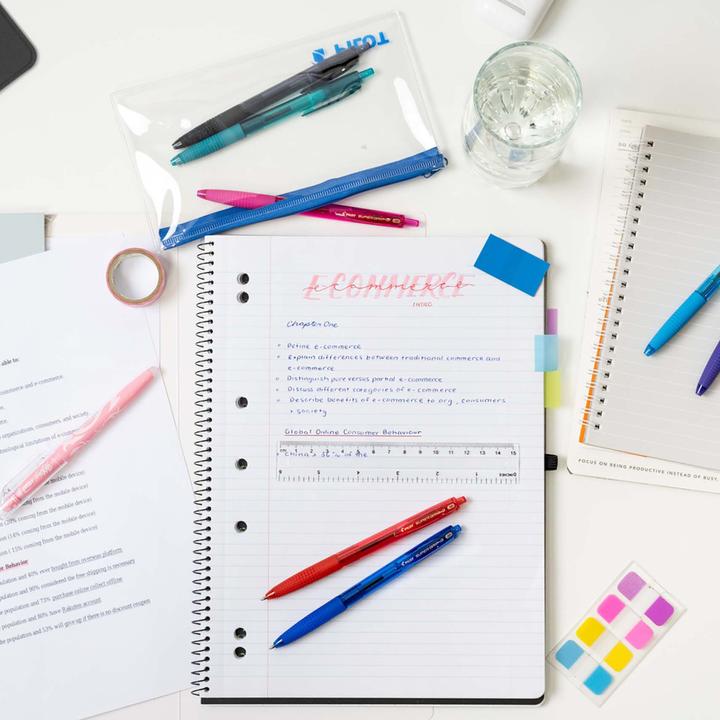 PILOT
PILOT SUPERGRIP G
ECOMMERCE
ecommerce
INTRO
Chapter One
Define e-commerce
Explain differences between traditional commerce and
e-commerce
Distinguish pure versus partial e-commerce
Discuss different categories of e-commerce
Describe benefits of e-commerce to org, consumers
+ society
Global Online Consumer Behaviour
1 2 3 4 5 6 7 8 9 10 11 12 13 14 15
China = 36% of the
6 5 4 3 2 1 INCHES
PILOT SUPERGRIP G
PILOT SUPERGRIP G
FOCUS ON BEING PRODUCTIVE INSTEAD OF BUSY.
able to:
commerce and e-commerce.
organizations, consumers, and society
limitations of e-commerce
coming from the mobile device)
coming from the mobile device)
(20% coming from the mobile device)
(14% coming from the mobile device)
(15% coming from the mobile device)
Behavior
and 40% ever bought from overseas platform
and 90% considered the free shipping is necessary
population and 73% purchase online collect offline
population and 60% have Rakuten account
the population and 53% will give up if there is no discount coupon